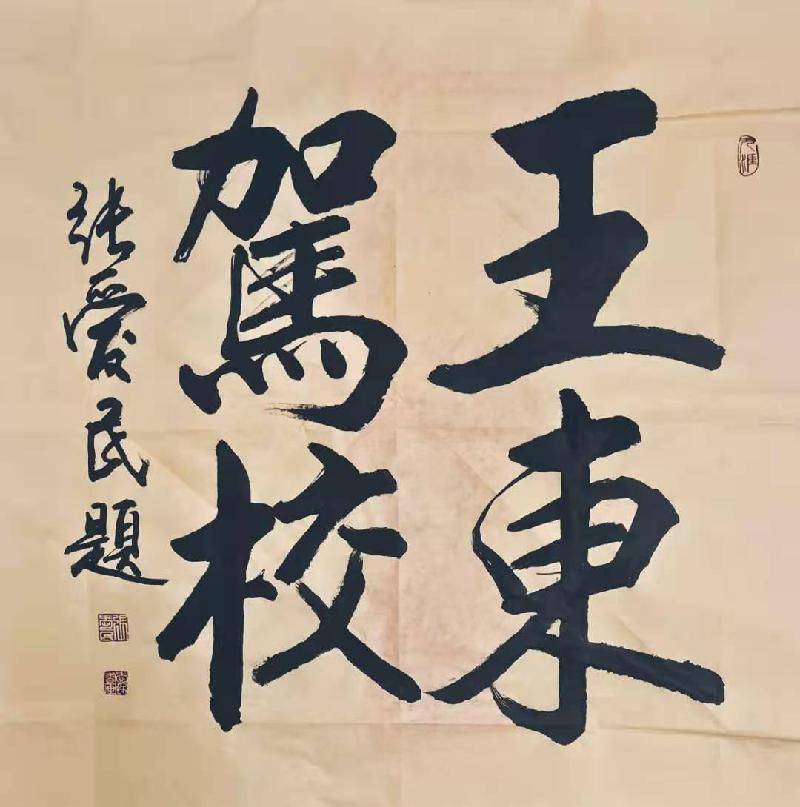 王東
駕校
張愛民題